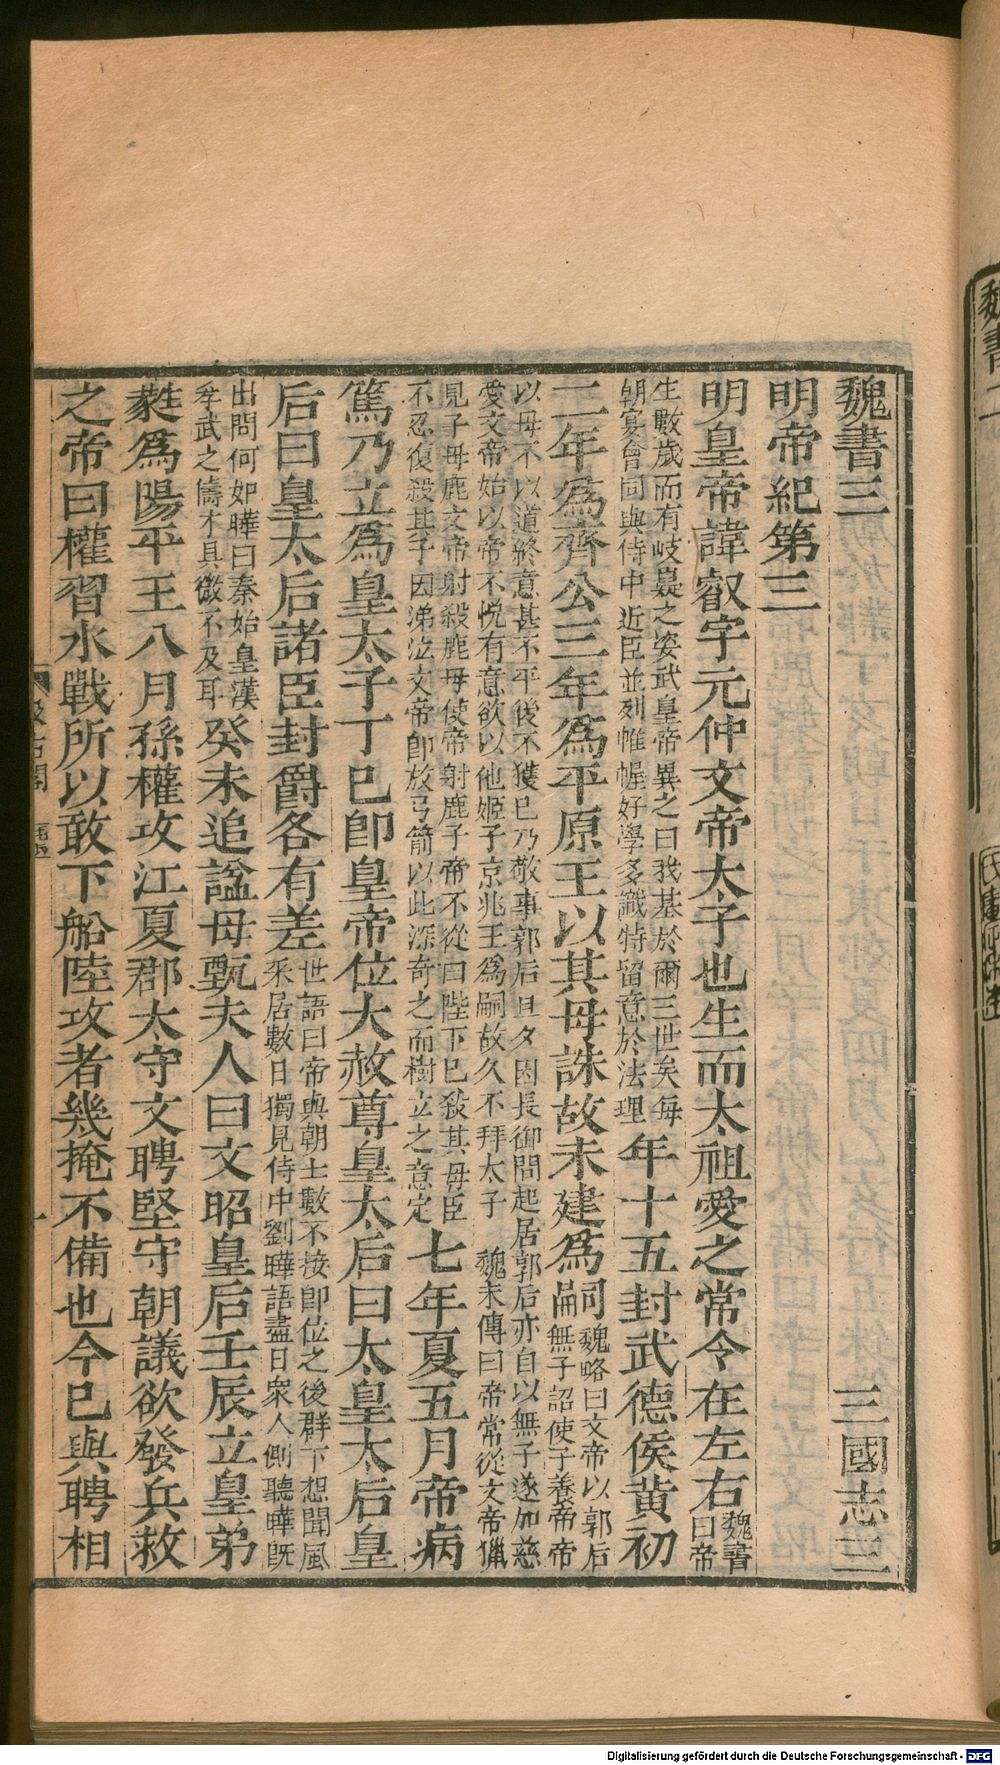 魏書二
魏書三 三國志三
明帝紀第三
明皇帝諱叡字元仲文帝太子也生而太祖愛之常令在左右魏書曰帝
生數歲而有岐嶷之姿武皇帝異之曰我基於爾三世矣每
朝宴會同與侍中近臣並列帷幄好學多識特留意於法理
年十五封武德侯黃初
二年爲齊公三年爲平原王以其母誅故未建爲嗣
魏略曰文帝以郭后
無子詔使子養帝帝
以母不以道終意甚不平後不獲已乃敬事郭后旦夕因長御問起居郭后亦自以無子遂加慈
愛文帝始以帝不悅有意欲以他姬子京兆王爲嗣故久不拜太子 魏末傳曰帝常從文帝獵
見子母鹿文帝射殺鹿母使帝射鹿子帝不從曰陛下已殺其母臣
不忍復殺其子因涕泣文帝卽放弓箭以此深奇之而樹立之意定
七年夏五月帝病
篤乃立爲皇太子丁巳卽皇帝位大赦尊皇太后曰太皇太后皇
后曰皇太后諸臣封爵各有差
世語曰帝與朝士數不接卽位之後群下想聞風
采居數日獨見侍中劉曄語盡日衆人側聽曄旣
出問何如曄曰秦始皇漢
孝武之儔才具微不及耳
癸未追諡母甄夫人曰文昭皇后壬辰立皇弟
蕤爲陽平王八月孫權攻江夏郡太守文聘堅守朝議欲發兵救
之帝曰權習水戰所以敢下船陸攻者幾掩不備也今已與聘相
一
Digitalisierung gefördert durch die Deutsche Forschungsgemeinschaft - DFG